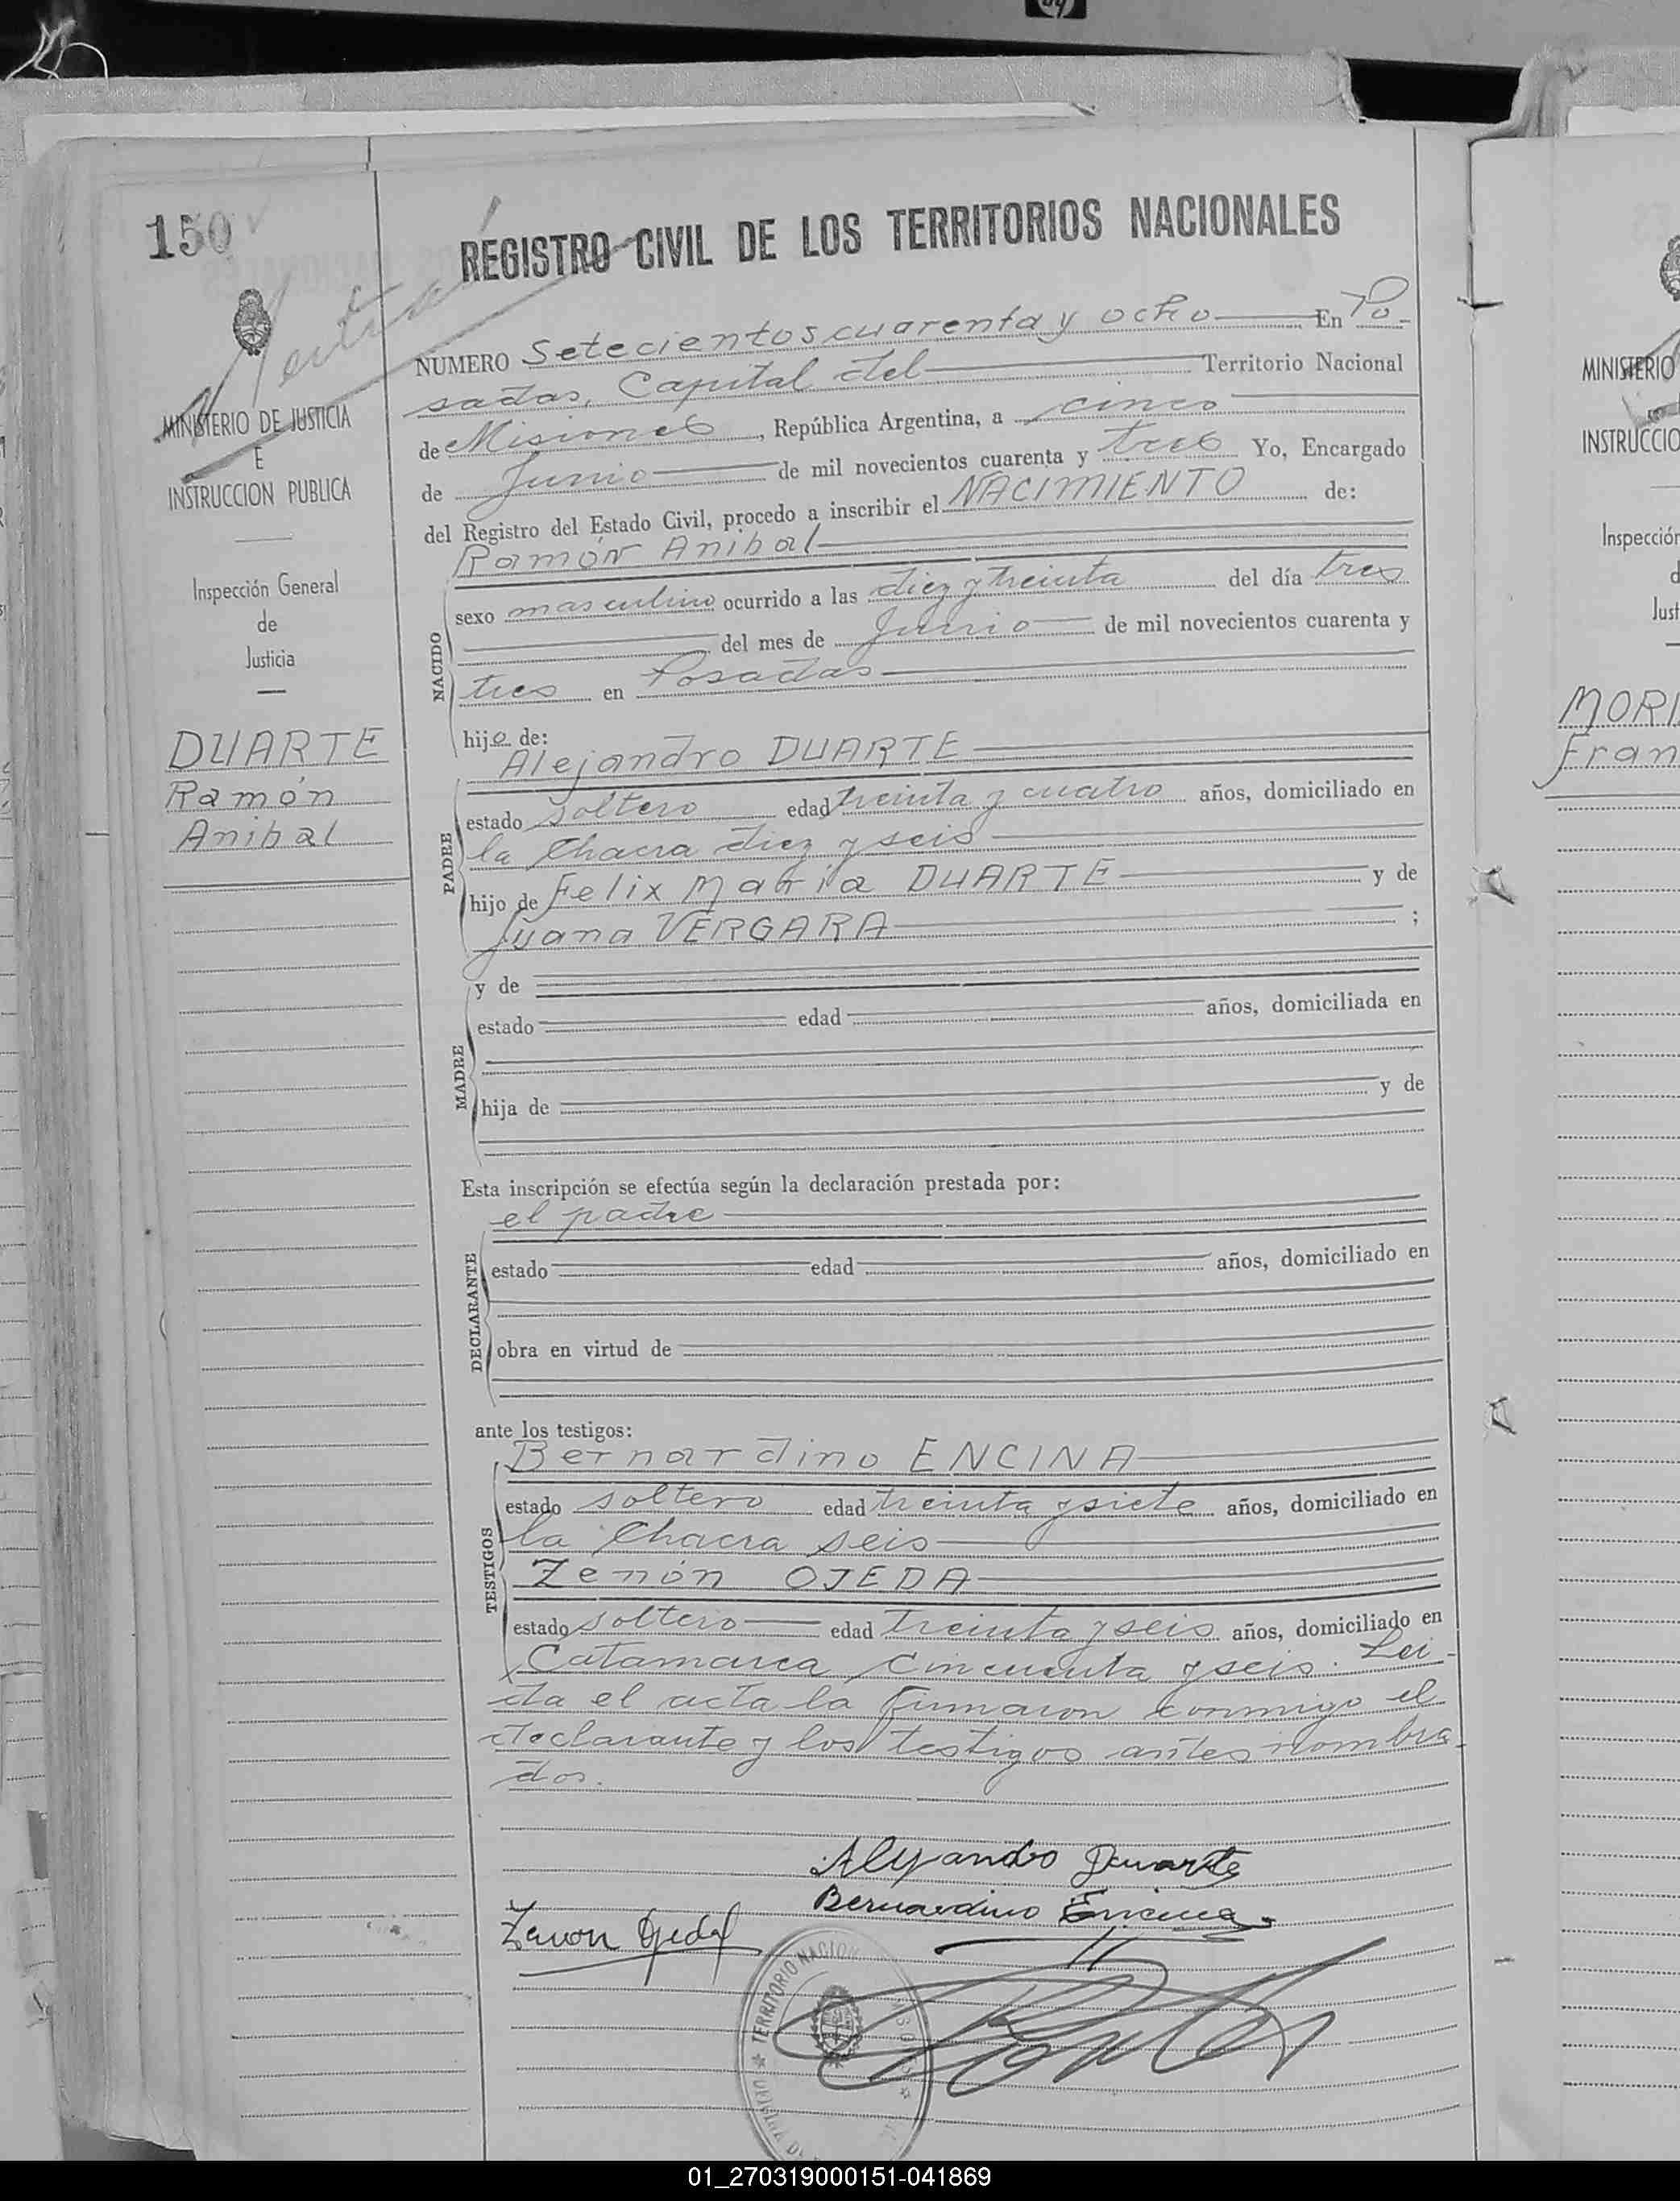 150
REGISTRO CIVIL DE LOS TERRITORIOS NACIONALES
MINISTERIO DE JUSTICIA
E
INSTRUCCION PUBLICA
Inspección General
de
Justicia
DUARTE
Ramón
Anibal
NUMERO Setecientos cuarenta y ocho En Po-
sadas, Capital del Territorio Nacional
de Misiones, República Argentina, a cinco
de Junio de mil novecientos cuarenta y tres Yo, Encargado
del Registro del Estado Civil, procedo a inscribir el NACIMIENTO de:
NACIDO
Ramón Anibal
sexo masculino ocurrido a las diez y treinta del día tres
del mes de Junio de mil novecientos cuarenta y
tres en Posadas
hijo de:
PADRE
Alejandro DUARTE
estado soltero edad treinta y cuatro años, domiciliado en
la Chacra diez y seis
hijo de Felix Maria DUARTE y de
Juana VERGARA ;
MADRE
y de
estado edad años, domiciliada en
hija de y de
Esta inscripción se efectúa según la declaración prestada por:
DECLARANTE
el padre
estado edad años, domiciliado en
obra en virtud de
ante los testigos:
TESTIGOS
Bernardino ENCINA
estado soltero edad treinta y siete años, domiciliado en
la Chacra seis
Zenón OJEDA
estado soltero edad treinta y seis años, domiciliado en
Catamarca cincuenta y seis. Lei-
da el acta la firmaron conmigo el
declarante y los testigos antes nombra-
dos.
Alejandro Duarte
Bernardino Encina
Zenon Ojeda
TERRITORIO NACION
MINISTERIO
INSTRUCCIO
Inspección
d
Just
MORI
Fran
01_270319000151-041869